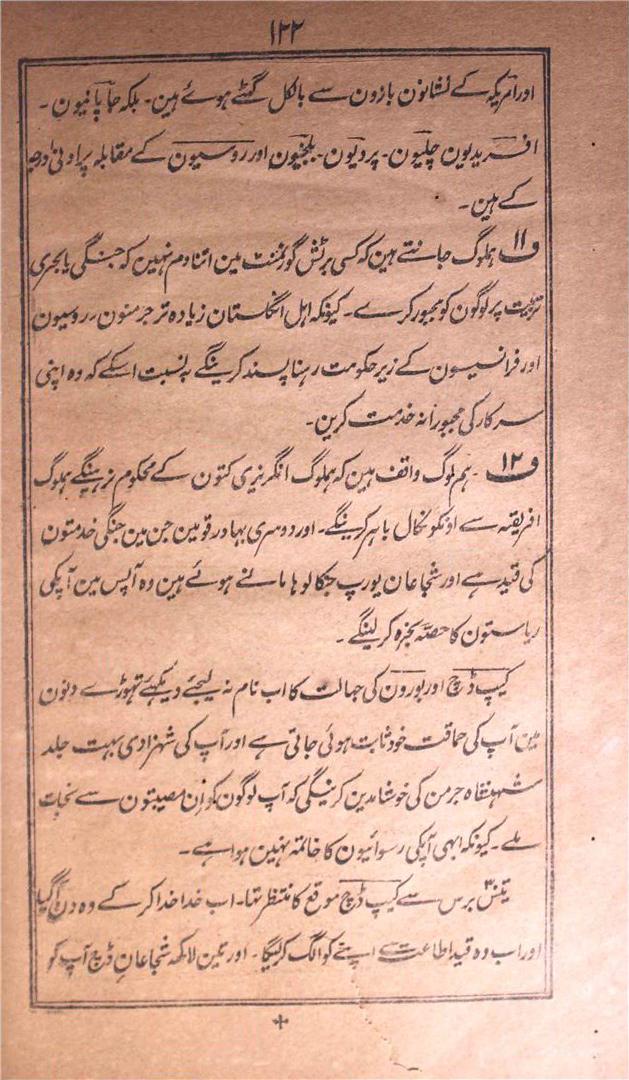 ۱۲۲
اور امریکہ کے نشانون بازون سے بالکل گھٹے ہوئے ہین۔ بلکہ جاپانیون۔
افریدیون چلیون۔ پرویون۔ بلجیون اور روسیون کے مقابلہ پر ادنیٰ درجہ
کے ہین۔
ف۱۱ ہملوگ جانتے ہین کہ کسی برٹش گورنمنٹ مین اتنا دم نہین کہ جنگی یا بحری
تربیت پر لوگون کو مجبور کرے۔ کیونکہ اہل انگلستان زیادہ تر جرمنون، روسیون
اور فرانسیسون کے زیر حکومت رہنا پسند کرینگے بہ نسبت اسکے کہ وہ اپنی
سرکار کی مجبورانہ خدمت کرین۔
ف۱۲۔ ہم لوگ واقف ہین کہ ہملوگ انگریزی کتون کے محکوم نرہینگے ہملوگ
افریقہ سے اونکو نکال باہر کرینگے۔ اور دوسری بہادر قومین جن مین جنگی خدمتون
کی قید ہے اور شجاعان یورپ جنکا لوہا مانے ہوئے ہین وہ آپس مین آپکی
ریاستون کا حصہ بخرہ کر لینگے۔
کیپ ڈچ اور بورون کی جہالت کا اب نام نہ لیجئے دیکھئے تھوڑے دنون
مین آپ کی حماقت خود ثابت ہوئی جاتی ہے اور آپ کی شہزادی بہت جلد
شہنشاہ جرمن کی خوشامدین کرینگی کہ آپ لوگون کو ان مصیبتون سے نجات
ملے۔ کیونکہ ابھی آپکی رسوائیون کا خاتمہ نہین ہوا ہے۔
برس سے کیپ ڈچ موقع کا منتظر تھا۔ اب خدا خدا کر کے وہ دن آگیا
اور اب وہ قید اطاعت سے اپنے کو الگ کر لیگا۔ اور تین لاکھ شجاعان ڈچ آپ کو